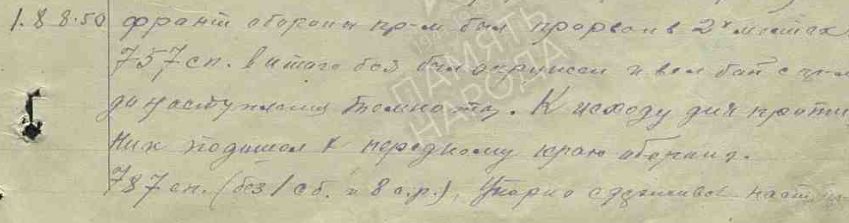 1.8 8.50 фронт обороны пр-м был прорван в 2х местах
757 сп. в итоге без был окружен и вел бой с пр-м
до наступления темноты. К исходу дня проти
ник подошол к переднему краю обороны.
787 сп. (без 1 сб. и 8 с.р.) Упорно сдерживал наступ
ПАМЯТЬ
НАРОДА